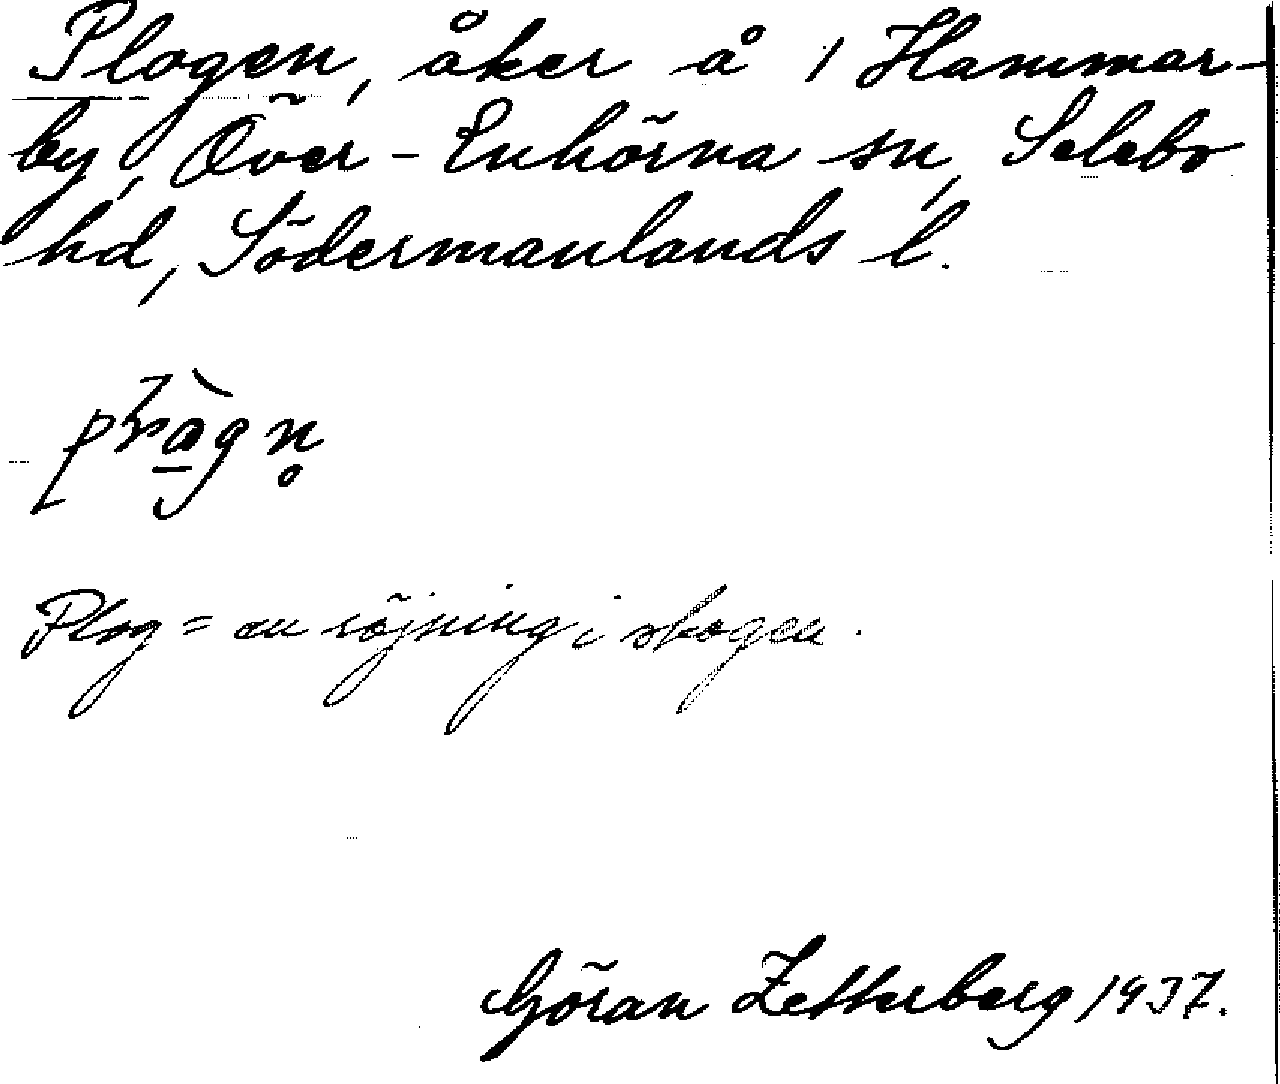 Plogen, åker å 1 Hammar-
by, Över-Enhörna sn, Selebo
hd, Södermanlands l.
Plog = en röjning i skogen.
Göran Zetterberg 1937.